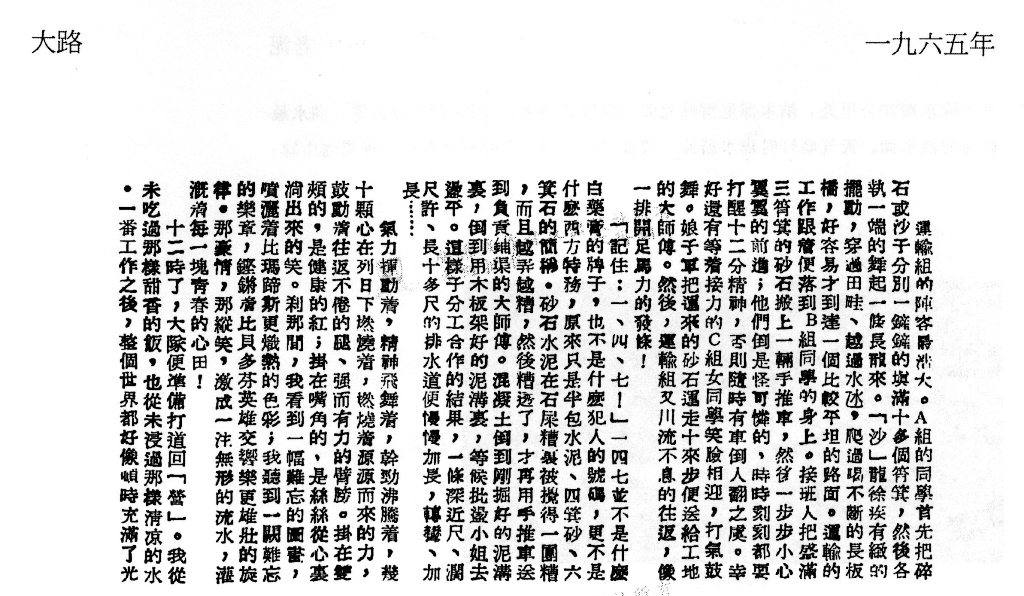 大路
一九六五年
運輸組的陣容最浩大。A組的同學首先把碎
石或沙子分別一鏟鏟的填滿十多個筲箕,然後各
執一端的舞起一條長龍來。「沙」龍徐疾有緻的
擺動,穿過田畦、越過水氹,爬過唱不斷的長板
橋,好容易才到達一個比較平坦的路面。運輸的
工作跟着便落到B組同學的身上。接班人把盛滿
三筲箕的砂石搬上一輛手推車,然後一步步小心
翼翼的前進;他們倒是怪可憐的,時時刻刻都要
打醒十二分精神,否則隨時有車倒人翻之虞。幸
好還有等着接力的C組女同學笑臉相迎,打氣鼓
舞。娘子軍把運來的砂石運走十來步便送給工地
的大師傅。然後,運輸組又川流不息的往返,像
一排開足馬力的發條!
「記住:一、四、七!」一四七並不是什麼
白藥膏的牌子,也不是什麼犯人的號碼,更不是
什麼西方特務,原來只是半包水泥、四箕砂、六
箕石的簡稱。砂石水泥在石屎糟裏被攪得一團糟
,而且越弄越糟,然後糟透了,才再用手推車送
到負責鋪渠的大師傅。混凝土倒到剛掘好的泥溝
裏,倒用木板架好的泥溝裏,等候批盪小姐去
盪平。這樣子分工合作的結果,一條深近尺、濶
尺許、長十多尺的排水道便慢慢加長,轉彎、加
長……
氣力揮動着,精神飛舞着,幹勁沸騰着,幾
十顆心在列日下燃燒着,燃燒着源源而來的力,
鼓動着往返不倦的腿、强而有力的臂膀。掛在雙
頰的,是健康的紅;掛在嘴角的,是絲絲從心裏
淌出來的笑。刹那間,我看到一幅難忘的圖畫,
噴灑着比瑪蒂斯更熾熱的色彩;我聽到一闋難忘
的樂章,鏗鏘着比貝多芬英雄交響樂更雄壯的旋
律。那豪情,那縱笑,激成一注無形的流水,灌
溉着每一塊青春的心田!
十二時了,大隊便準備打道回「營」。我從
未吃過那樣甜香的飯,也從未浸過那樣清凉的水
。一番工作之後,整個世界都好像頓時充滿了光